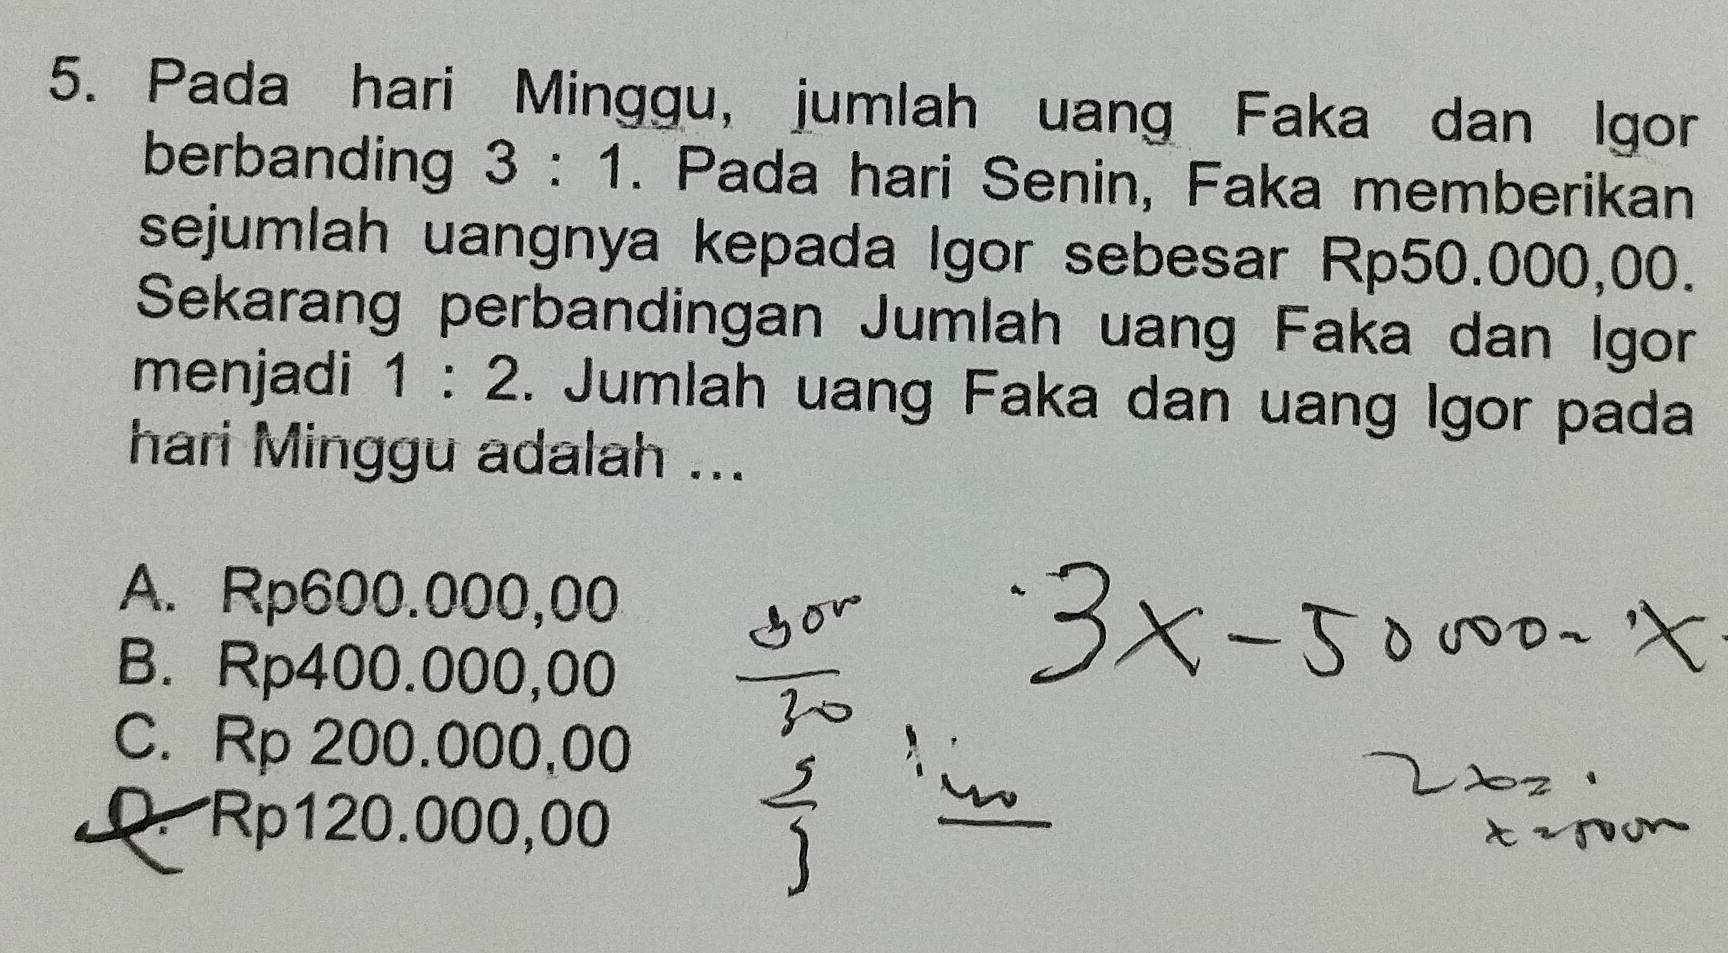 5. Pada hari Minggu, jumlah uang Faka dan Igor
berbanding 3 : 1. Pada hari Senin, Faka memberikan
sejumlah uangnya kepada Igor sebesar Rp50.000,00.
Sekarang perbandingan Jumlah uang Faka dan Igor
menjadi 1 : 2. Jumlah uang Faka dan uang Igor pada
hari Minggu adalah ...
A. Rp600.000,00
B. Rp400.000,00
C. Rp 200.000,00
D. Rp120.000,00
3x - 50000 - x